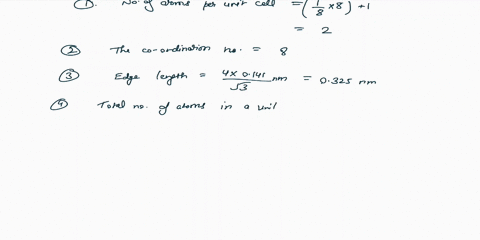 ① No. of atoms per unit cell = (1/8 × 8) + 1
= 2
② The co-ordination no. = 8
③ Edge length = 4 × 0.141 / √3 nm = 0.325 nm
④ Total no. of atoms in a unit